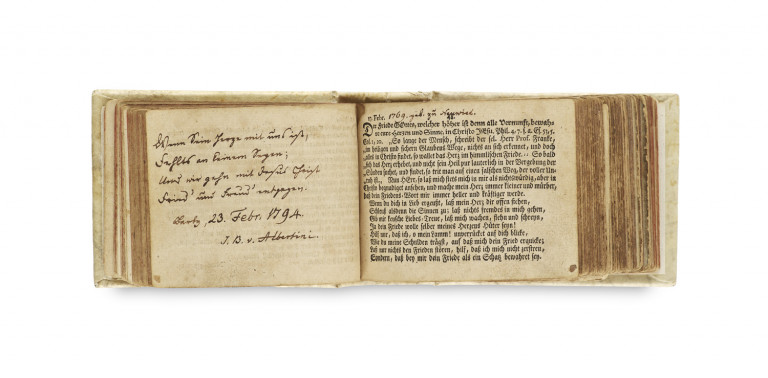 Wenn Sein Herze mit uns ist,
Fehlts an keinem Segen;
Und wir gehn mit Jesus Christ
Fried' und Freud' entgegen.
Barby, 23. Febr. 1794.
J. B. v. Albertini.
17. Febr. 1769. geb. zu Neuwied.
Der Friede GOttes, welcher höher ist denn alle Vernunft, bewahre
eure Herzen und Sinne, in Christo JEsu. Phil. 4, 7.
Col. 3, 10. „So lange der Mensch, schreibt der sel. Herr Prof. Franke,
im heiligen und sichern Glaubens Wege, nichts an sich erkennet, und doch
alles in Christo findet, so wallet das Herz im himmlischen Friede. So bald
sich das Herz erhebet, und nicht sein Heil pur lauterlich in der Vergebung der
Sünden suchet, und findet, so trit man auf einen falschen Weg, der voller Un-
ruh ist.„ Nun HErr, so laß mich stets mich in mir als nichtswürdig, aber in
Christo begnadiget ansehen, und mache mein Herz immer kleiner und mürber,
daß dein Friedens-Wort mir immer lieber und kräftiger werde.
Wenn du dich in Lieb ergeußt, laß mein Herz dir offen stehen,
Schleuß alsdenn die Sinnen zu; laß nichts fremdes in mich gehen,
Gib mir wache Liebes-Treue, laß mich wachen, flehn und schreyn,
Ja dein Friede wolle selber meines Herzens Hüter seyn!
Hilf mir, daß ich, o mein Lamm! unverrückt auf dich blicke,
Wie du meine Schulden trägst, auf daß mich dein Fried erquicke;
Laß mir nichts den Frieden stören, hilf, daß ich mich nicht zerstreu,
Sondern, daß bey mir dein Friede als ein Schatz bewahret sey.